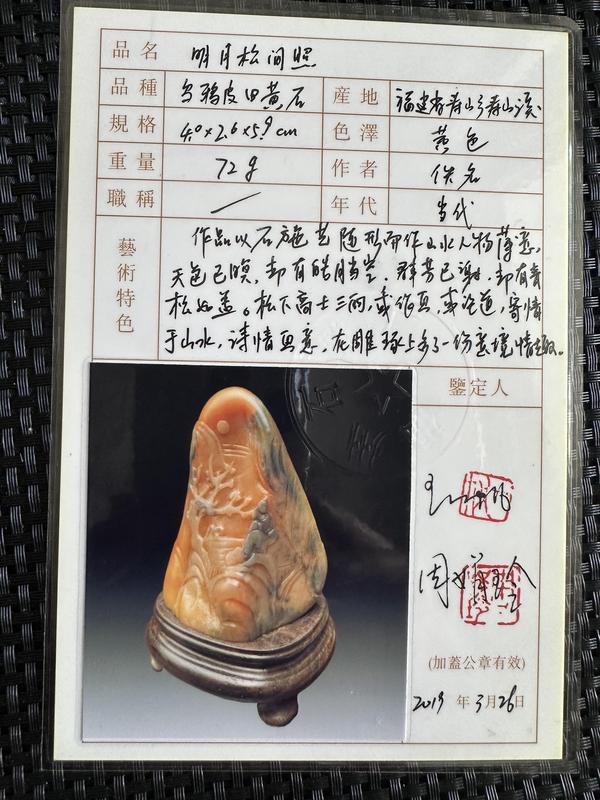 品名 明月松间照
品種 乌鸦皮田黄石 産地 福建省寿山乡寿山溪
規格 4.0×2.6×5.9cm 色澤 黄色
重量 72g 作者 佚名
職稱 — 年代 当代
藝術特色
作品以石施艺随形而作山水人物薄意。
天色已暝，却有皓月当空。群芳已谢，却有青
松如盖。松下高士三两，或作画，或论道，寄情
于山水，诗情画意，在雕琢上多了一份意境情趣。
鑒定人
(加蓋公章有效)
2019年3月26日